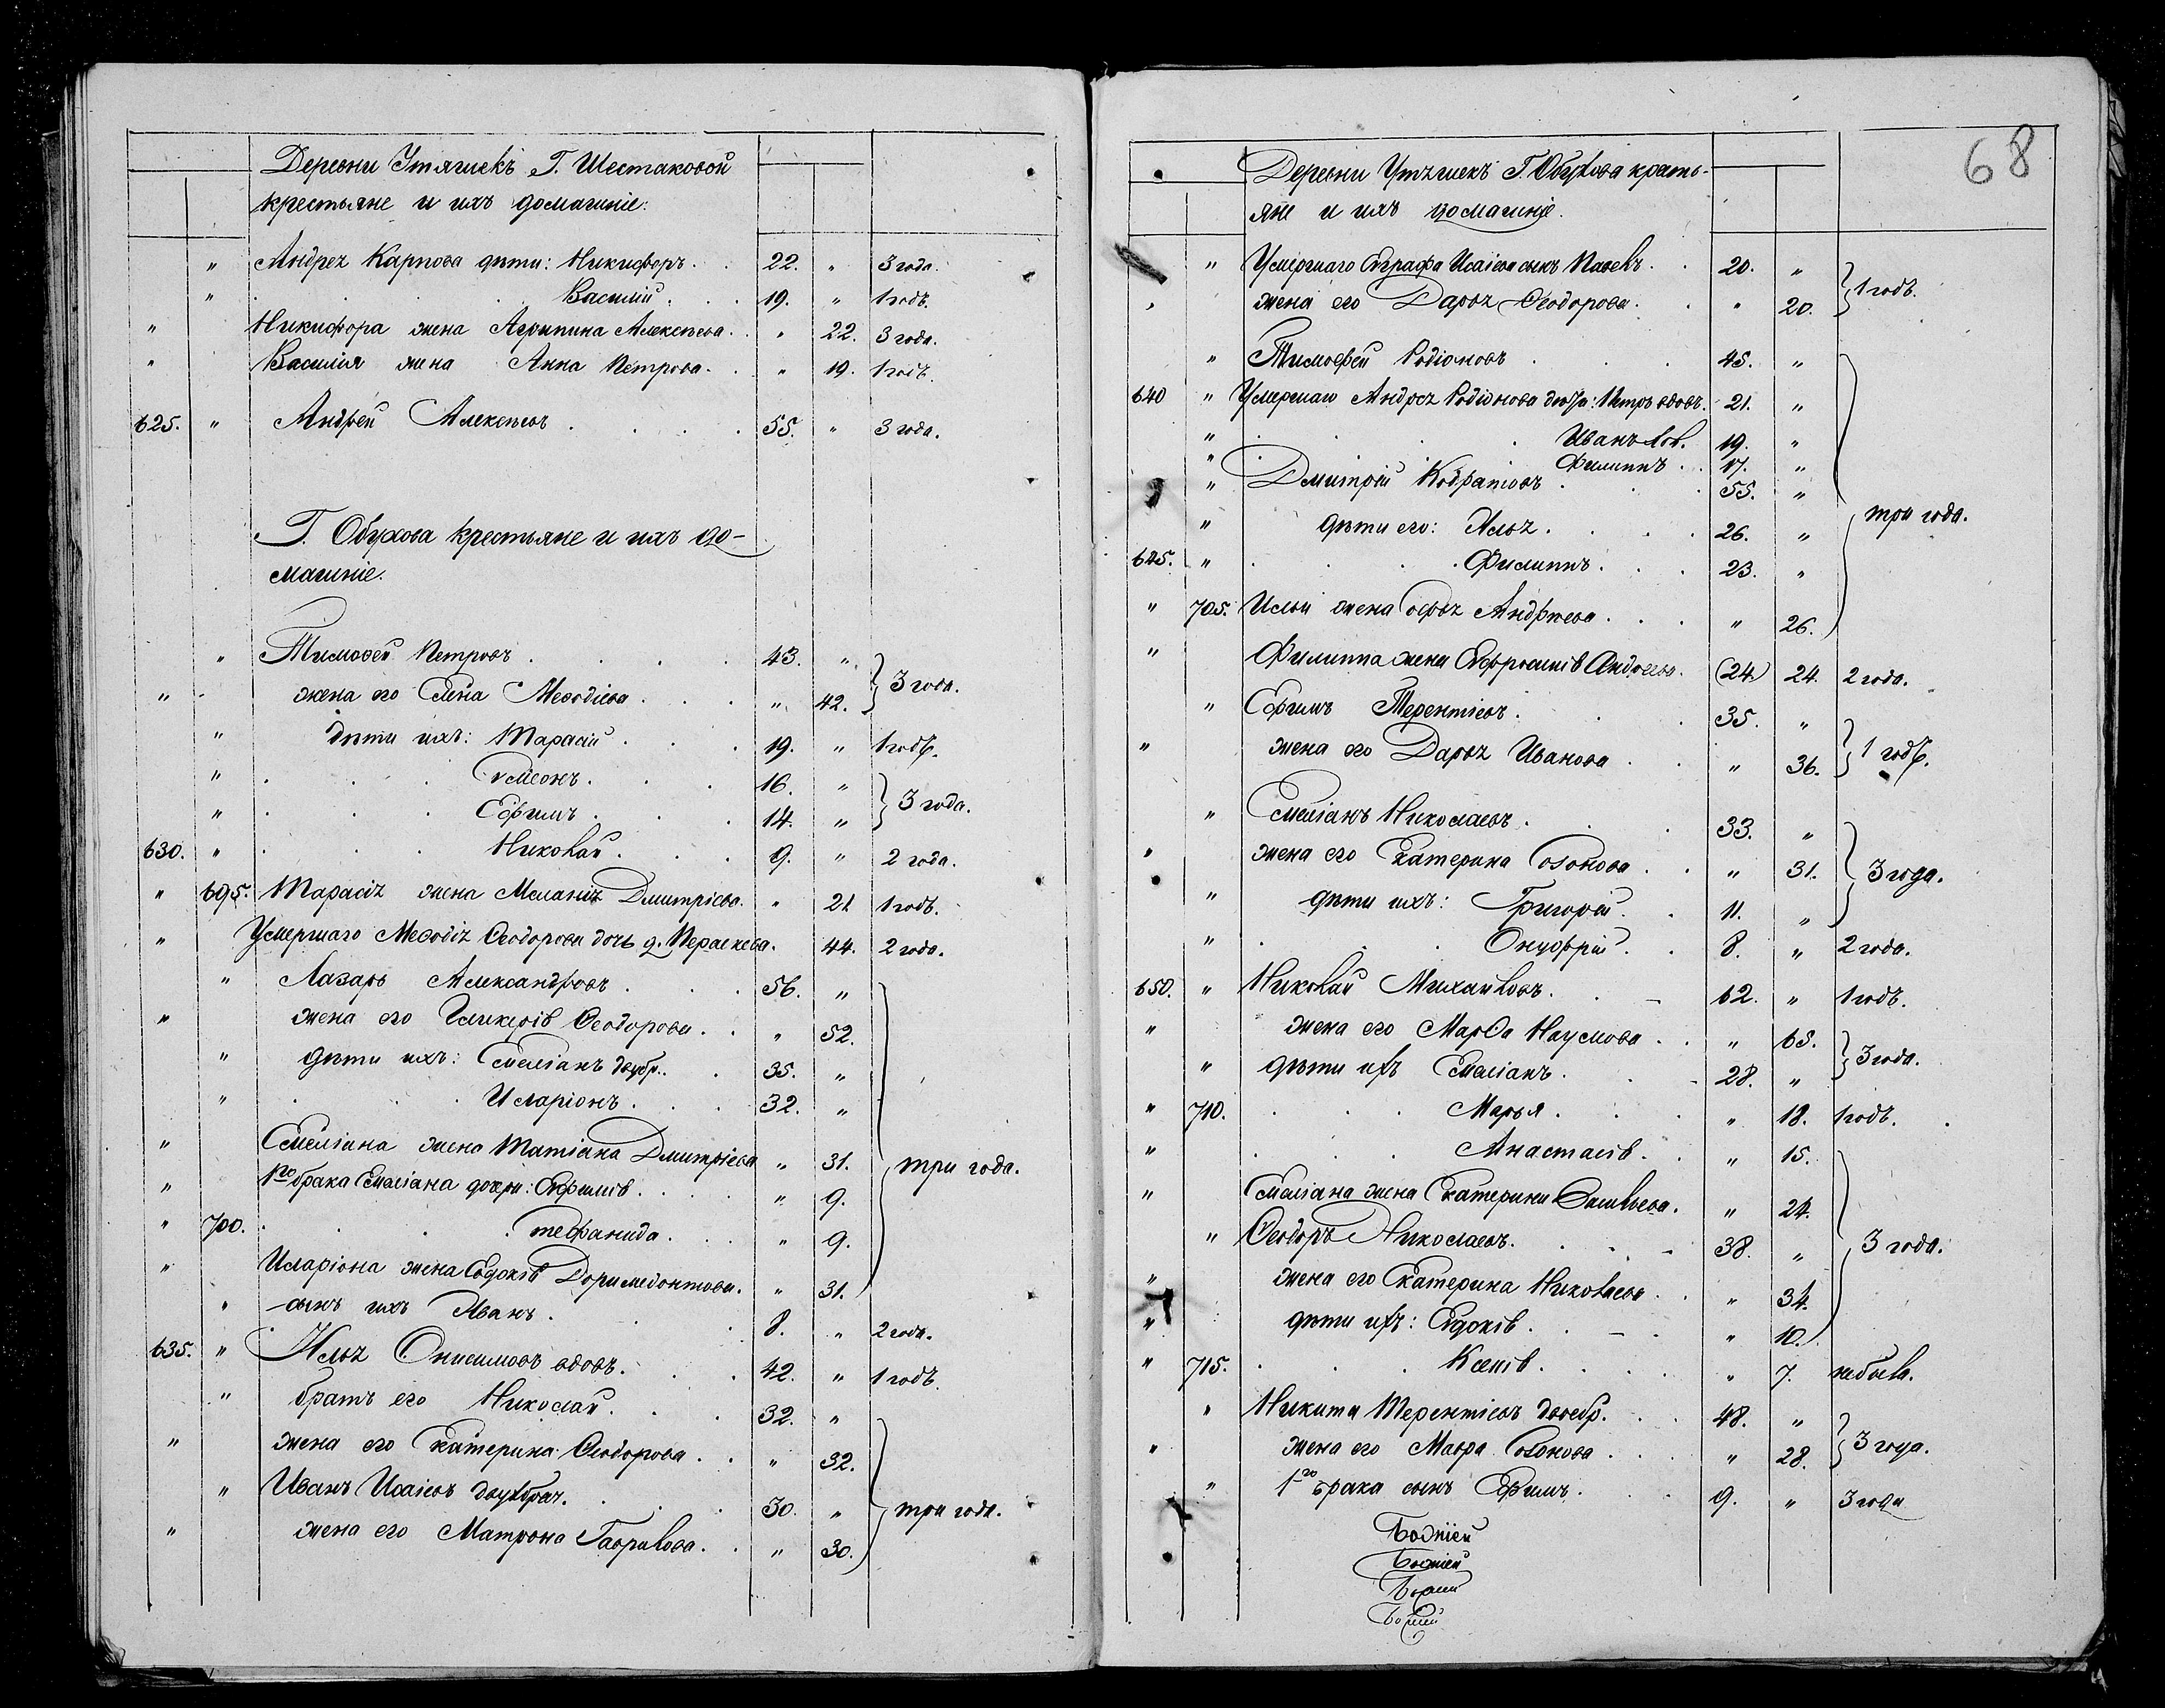 Деревни Утяшекъ Г. Шестаковой
крестьяне и ихъ домашніе:
" Андрея Карпова дѣти: Никифоръ . . 22. " 3 года.
" . . . Василій . . . 19. " 1 годъ.
" Никифора жена Агрипина Алексѣева . . " 22. 3 года.
" Василія жена Анна Петрова . . " 19. 1 годъ.
625. " Андрей Алексѣевъ . . . . 55. " 3 года.
Г. Обухова крестьяне и ихъ до-
машніе.
" Тимоѳей Петровъ . . . . 43. "
" жена его Елена Меѳодіева . . . " 42. } 3 года.
" дѣти ихъ: Тарасій . . . 19. " 1 годъ.
" . . . Симеонъ . . . 16. "
" . . . Ефимъ . . . 14. " } 3 года.
630. " . . . Николай . . . 9. " 2 года.
" 695. Тарасія жена Меланія Дмитріева. " 21 1 годъ.
" Умершаго Меѳодія Ѳеодорова дочь д. Параскева. 44. 2 года.
" Лазарь Александровъ . . . 56. "
" жена его Гликерія Ѳеодорова . . " 52.
" дѣти ихъ: Емеліанъ двубр. . 35. "
" . . . Иларіонъ . . . 32. "
" Емеліана жена Татіана Дмитріева " 31. } три года.
" 1го брака Емеліана дочери: Евфимія . . . " 9.
" 700. . . . Стефанида . . . " 9.
" Иларіона жена Евдокія Доримедонтова. " 31.
" сынъ ихъ Иванъ . . . 8. " 2 года.
635. " Илья Онисимовъ вдовъ . . . 42. " 1 годъ.
" братъ его Николай . . . 32. "
" жена его Екатерина Ѳеодорова . . " 32.
" Иванъ Исаіевъ двубрач. . . 30. " } три года.
" жена его Матрона Гаврилова . . " 30.
68
Деревни Утяшекъ Г. Обухова кресть-
яне и ихъ домашніе.
" Умершаго Евграфа Исаіева сынъ Павелъ . . 20. "
" жена его Дарья Ѳеодорова . . " 20. } 1 годъ.
" Тимоѳей Родіоновъ . . . 45. "
640 " Умершаго Андрея Родіонова дѣти: Петръ вдовъ. 21. "
" . . . Иванъ 19. "
" . . . Филиппъ . . 17. "
" Дмитрій Кодратовъ . . . 55. "
" дѣти его: Илья . . . . 26. " } три года.
645. " . . . Филиппъ . . . 23. "
" 705. Ильи жена Софья Андреева . . . " 26.
" Филиппа жена Евфросинія Андреева. (24.) 24. 2 года.
" Ефимъ Терентіевъ . . . 35. "
" жена его Дарья Иванова . . " 36. } 1 годъ.
" Емеліанъ Николаевъ . . . 33. "
" жена его Екатерина Созонова . . " 31. } 3 года.
" дѣти ихъ: Григорій . . 11. "
" . . . Онуфрій . . 8. " 2 года.
650. " Николай Михайловъ . . 62. " 1 годъ.
" жена его Марѳа Наумова . . " 65.
" дѣти ихъ Емеліанъ . . . 28. " } 3 года.
" 710. . . . Марья . . . " 18. 1 годъ.
" . . . Анастасія . . " 15.
" Емеліана жена Екатерина Васильева . " 24.
" Ѳеодоръ Николаевъ . . . 38. " } 3 года.
" жена его Екатерина Николаева . . " 34.
" дѣти ихъ: Евдокія . . . " 10.
" 715. . . . Ксенія . . . " 7. не была.
" Никита Терентіевъ двоебр. . . 48. "
" жена его Мавра Созонова . . . " 28. } 3 года.
" 1го брака сынъ Ефимъ . . . 9. " 3 года